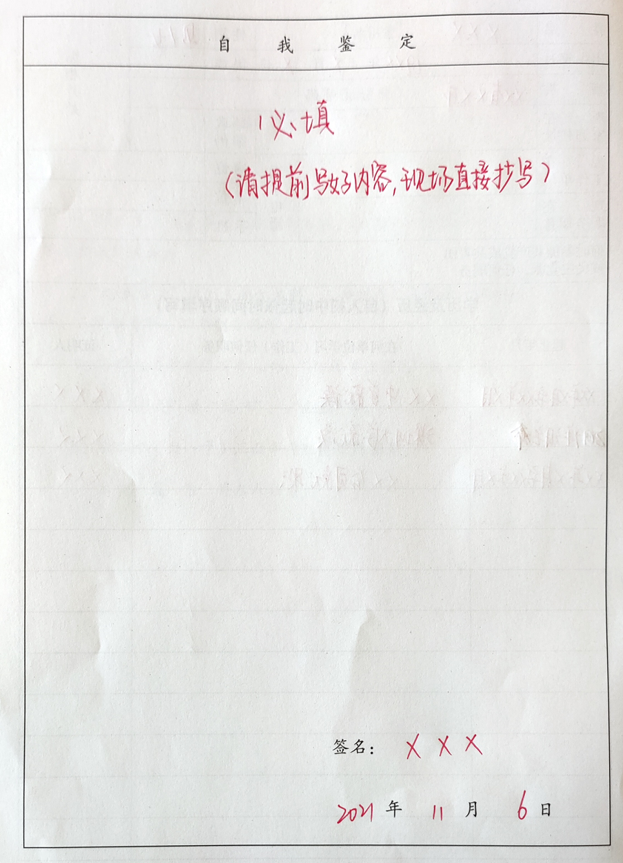 自我鉴定
必填
(请提前写好内容,现场直接抄写)
签名: X X X
2021 年 11 月 6 日